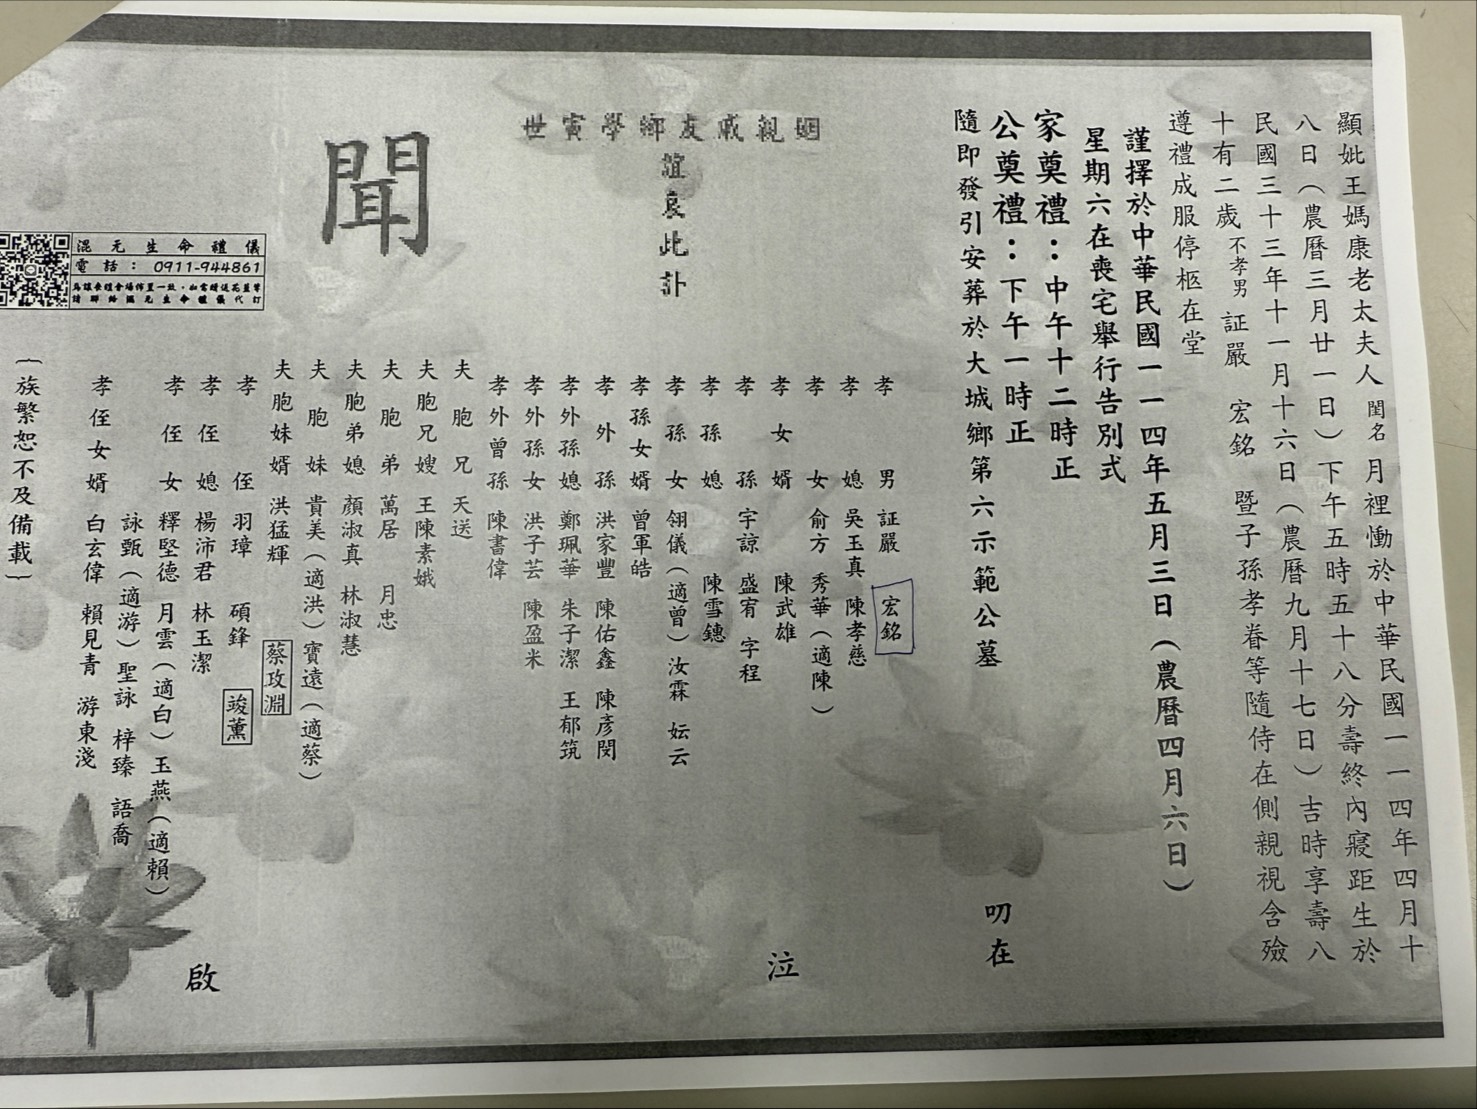 顯妣王媽康老太夫人閨名月裡慟於中華民國一一四年四月十
八日（農曆三月廿一日）下午五時五十八分壽終內寢距生於
民國三十三年十一月十六日（農曆九月十七日）吉時享壽八
十有二歲不孝男証嚴 宏銘 暨子孫孝眷等隨侍在側親視含殮
遵禮成服停柩在堂
謹擇於中華民國一一四年五月三日（農曆四月六日）
星期六在喪宅舉行告別式
家奠禮：中午十二時正
公奠禮：下午一時正
隨即發引安葬於大城鄉第六示範公墓
叨在
姻親戚友鄉學寅世
誼哀此訃
聞
孝男 証嚴 宏銘
孝媳 吳玉真 陳孝慈
孝女 俞方 秀華（適陳）
孝女婿 陳武雄
孝孫 宇諒 盛宥 字程
孝孫媳 陳雪鏸
孝孫女 翎儀（適曾）汝霖 妘云
孝孫女婿 曾軍皓
孝外孫 洪家豐 陳佑鑫 陳彥閔
孝外孫媳 鄭珮華 朱子潔 王郁筑
孝外孫女 洪子芸 陳盈米
孝外曾孫 陳書偉
夫胞兄 天送
夫胞兄嫂 王陳素娥
夫胞弟 萬居 月忠
夫胞弟媳 顏淑真 林淑慧
夫胞妹 貴美（適洪）寶遠（適蔡）
夫胞妹婿 洪猛輝 蔡玫淵
孝侄 羽璋 碩鋒 竣薰
孝侄媳 楊沛君 林玉潔
孝侄女 釋堅德 月雲（適白）玉燕（適賴）
詠甄（適游）聖詠 梓臻 語喬
孝侄女婿 白玄偉 賴見青 游東淺
泣
啟
（族繁恕不及備載）
混元生命禮儀
電話：0911-944861
為讓喪禮會場佈置一致，如需贈送花籃等
請聯絡混元生命禮儀代訂